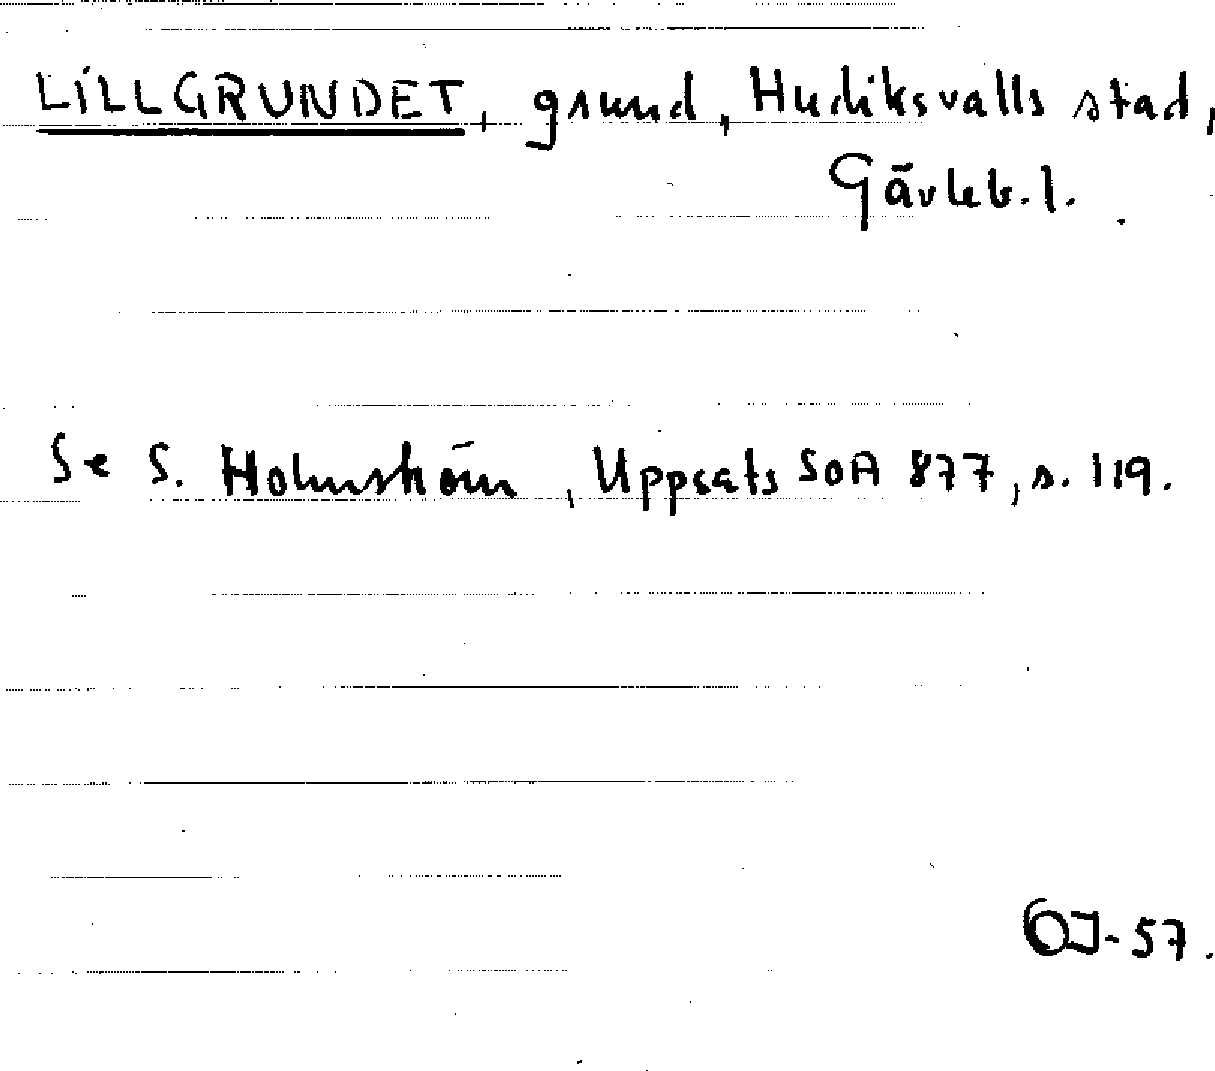 LILLGRUNDET, grund, Hudiksvalls stad,
Gävleb. l.
Se S. Holmström, Uppsats SOA 877, s. 119.
OJ-57.